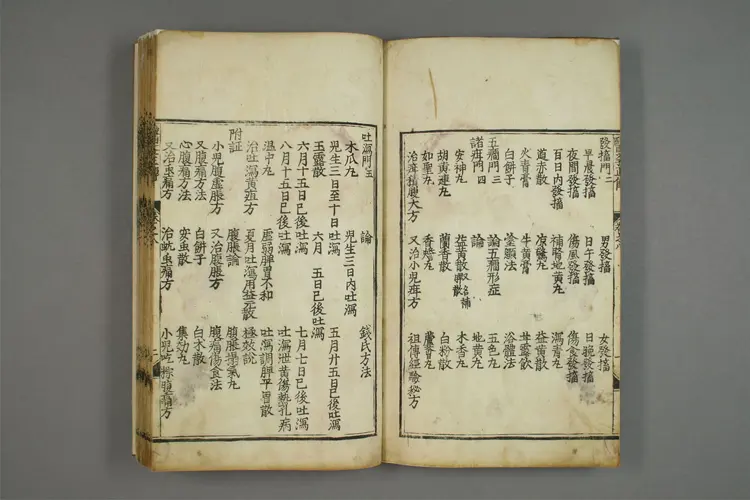 發搐門二
早晨發搐 日午發搐 日晚發搐
夜間發搐 傷風發搐 傷食發搐
百日內發搐 補腎地黃丸 瀉青丸
道赤散 凉驚丸 益黃散
火青膏 牛黃膏 甘露飲
白餅子 塗顖法 浴體法
五癇門三 論五癇形症 五色丸
安神丸 論 地黃丸
諸疳門四
胡黃連丸 益黃散 木香丸
如聖丸 蘭香散 白粉散
治疳積腹大方 香蟾丸 蘆薈丸
又治小兒疳方 祖傳經驗秘方
男發搐 女發搐
吐瀉門五 論 錢氏方法
木瓜丸 兒生三日內吐瀉
兒生三日至十日吐瀉 五月廿五日已後吐瀉
玉露散 六月 五日已後吐瀉
六月十五日已後吐瀉 七月七日已後吐瀉
八月十五日已後吐瀉 吐瀉泄黃傷熱乳病
溫中丸 虛弱脾胃不和 吐瀉調脾平胃散
治吐瀉黃疸方 夏月吐瀉用益元散 極效說
附証 腹脹論 腹脹搨氣丸
小兒腹虛脹方 又治腹脹方 腹痛傷食法
又腹痛方法 白餅子 白木散
心腹痛方法 安虫散 集効丸
又治虫痛方 治蚘虫痛方 小兒吃粽腹痛方